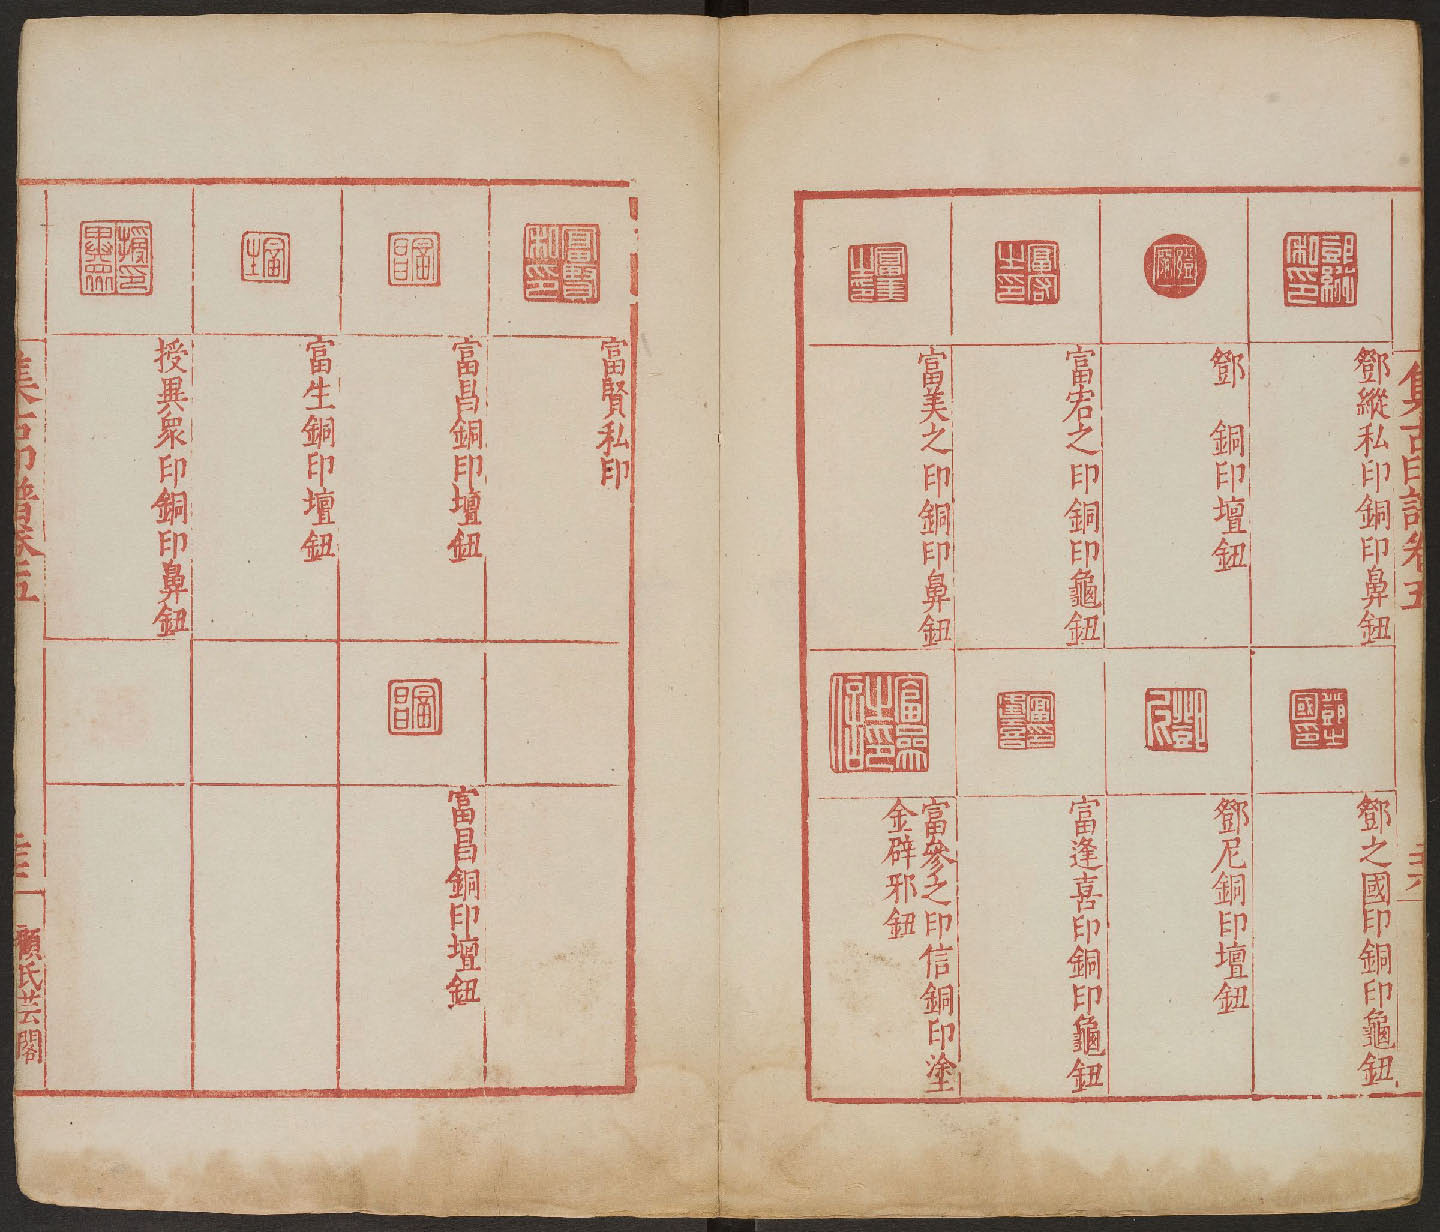 集古印譜卷五
鄧縱私印銅印鼻鈕
鄧 銅印壇鈕
富宕之印銅印龜鈕
富美之印銅印鼻鈕
鄧之國印銅印龜鈕
鄧尼銅印壇鈕
富逢喜印銅印龜鈕
富參之印信銅印塗
金辟邪鈕
富賢私印
富昌銅印壇鈕
富生銅印壇鈕
授異眾印銅印鼻鈕
富昌銅印壇鈕
集古印譜卷五
顧氏芸閣